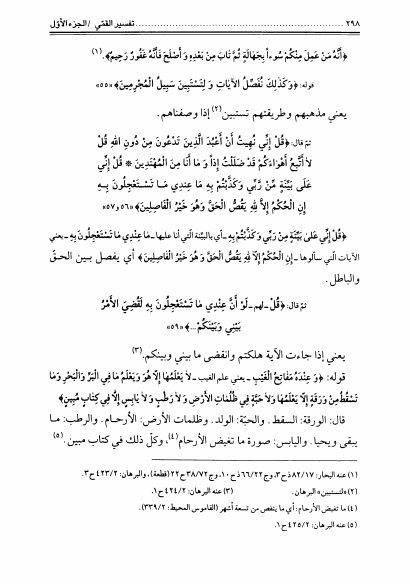 ٢٩٨ ........ تفسير القمّي / الجزء الأوّل
﴿أَنَّهُ مَنْ عَمِلَ مِنْكُمْ سُوءاً بِجَهَالَةٍ ثُمَّ تَابَ مِنْ بَعْدِهِ وَأَصْلَحَ فَأَنَّهُ غَفُورٌ رَحِيمٌ﴾.(١)
قوله: ﴿وَكَذَلِكَ نُفَصِّلُ الْآيَاتِ وَلِتَسْتَبِينَ سَبِيلُ الْمُجْرِمِينَ﴾ «٥٥»
يعني مذهبهم وطريقتهم تستبين(٢) إذا وصفناهم.
ثمّ قال: ﴿قُلْ إِنِّي نُهِيتُ أَنْ أَعْبُدَ الَّذِينَ تَدْعُونَ مِنْ دُونِ اللهِ قُلْ
لَا أَتَّبِعُ أَهْوَاءَكُمْ قَدْ ضَلَلْتُ إِذاً وَمَا أَنَا مِنَ الْمُهْتَدِينَ * قُلْ إِنِّي
عَلَى بَيِّنَةٍ مِّنْ رَّبِّي وَكَذَّبْتُمْ بِهِ مَا عِنْدِي مَا تَسْتَعْجِلُونَ بِهِ
إِنِ الْحُكْمُ إِلَّا لِلهِ يَقُصُّ الْحَقَّ وَهُوَ خَيْرُ الْفَاصِلِينَ﴾ «٥٦ و٥٧»
﴿قُلْ إِنِّي عَلَى بَيِّنَةٍ مِنْ رَبِّي وَكَذَّبْتُمْ بِهِ ـ أي بالبيّنة الّتي أنا عليها ـ مَا عِنْدِي مَا تَسْتَعْجِلُونَ بِهِ ـ يعني
الآيات الّتي سألوها ـ إِنِ الْحُكْمُ إِلَّا لِلهِ يَقُصُّ الْحَقَّ وَهُوَ خَيْرُ الْفَاصِلِينَ﴾ أي يفصل بين الحقّ
والباطل.
ثمّ قال: ﴿قُلْ ـ لهم ـ لَوْ أَنَّ عِنْدِي مَا تَسْتَعْجِلُونَ بِهِ لَقُضِيَ الْأَمْرُ
بَيْنِي وَبَيْنَكُمْ...﴾ «٥٩»
يعني إذا جاءت الآية هلكتم وانقضى ما بيني وبينكم.(٣)
قوله: ﴿وَعِنْدَهُ مَفَاتِحُ الْغَيْبِ ـ يعني علم الغيب ـ لَا يَعْلَمُهَا إِلَّا هُوَ وَيَعْلَمُ مَا فِي الْبَرِّ وَالْبَحْرِ وَمَا
تَسْقُطُ مِنْ وَرَقَةٍ إِلَّا يَعْلَمُهَا وَلَا حَبَّةٍ فِي ظُلُمَاتِ الْأَرْضِ وَلَا رَطْبٍ وَلَا يَابِسٍ إِلَّا فِي كِتَابٍ مُبِينٍ﴾
قال: الورقة: السقط. والحبّة: الولد. وظلمات الأرض: الأرحام. والرطب: ما
يبقى ويحيا. واليابس: صورة ما تغيض الأرحام(٤)، وكلّ ذلك في كتاب مبين.(٥)
(١) عنه البحار: ٨٢/١٧ ذح٣، وج٦٦/٢٢ ذح١٠، وج٣٨/٧٢ ح٢٢ (قطعة)، والبرهان: ٤٢٣/٢ ح٣.
(٢) «لتستبين» البرهان. (٣) عنه البرهان: ٤٢٤/٢ ح١.
(٤) ما تغيض الأرحام: أي ما ينقص من تسعة أشهر (القاموس المحيط: ٣٣٩/٢).
(٥) عنه البرهان: ٤٢٥/٢ ح١.